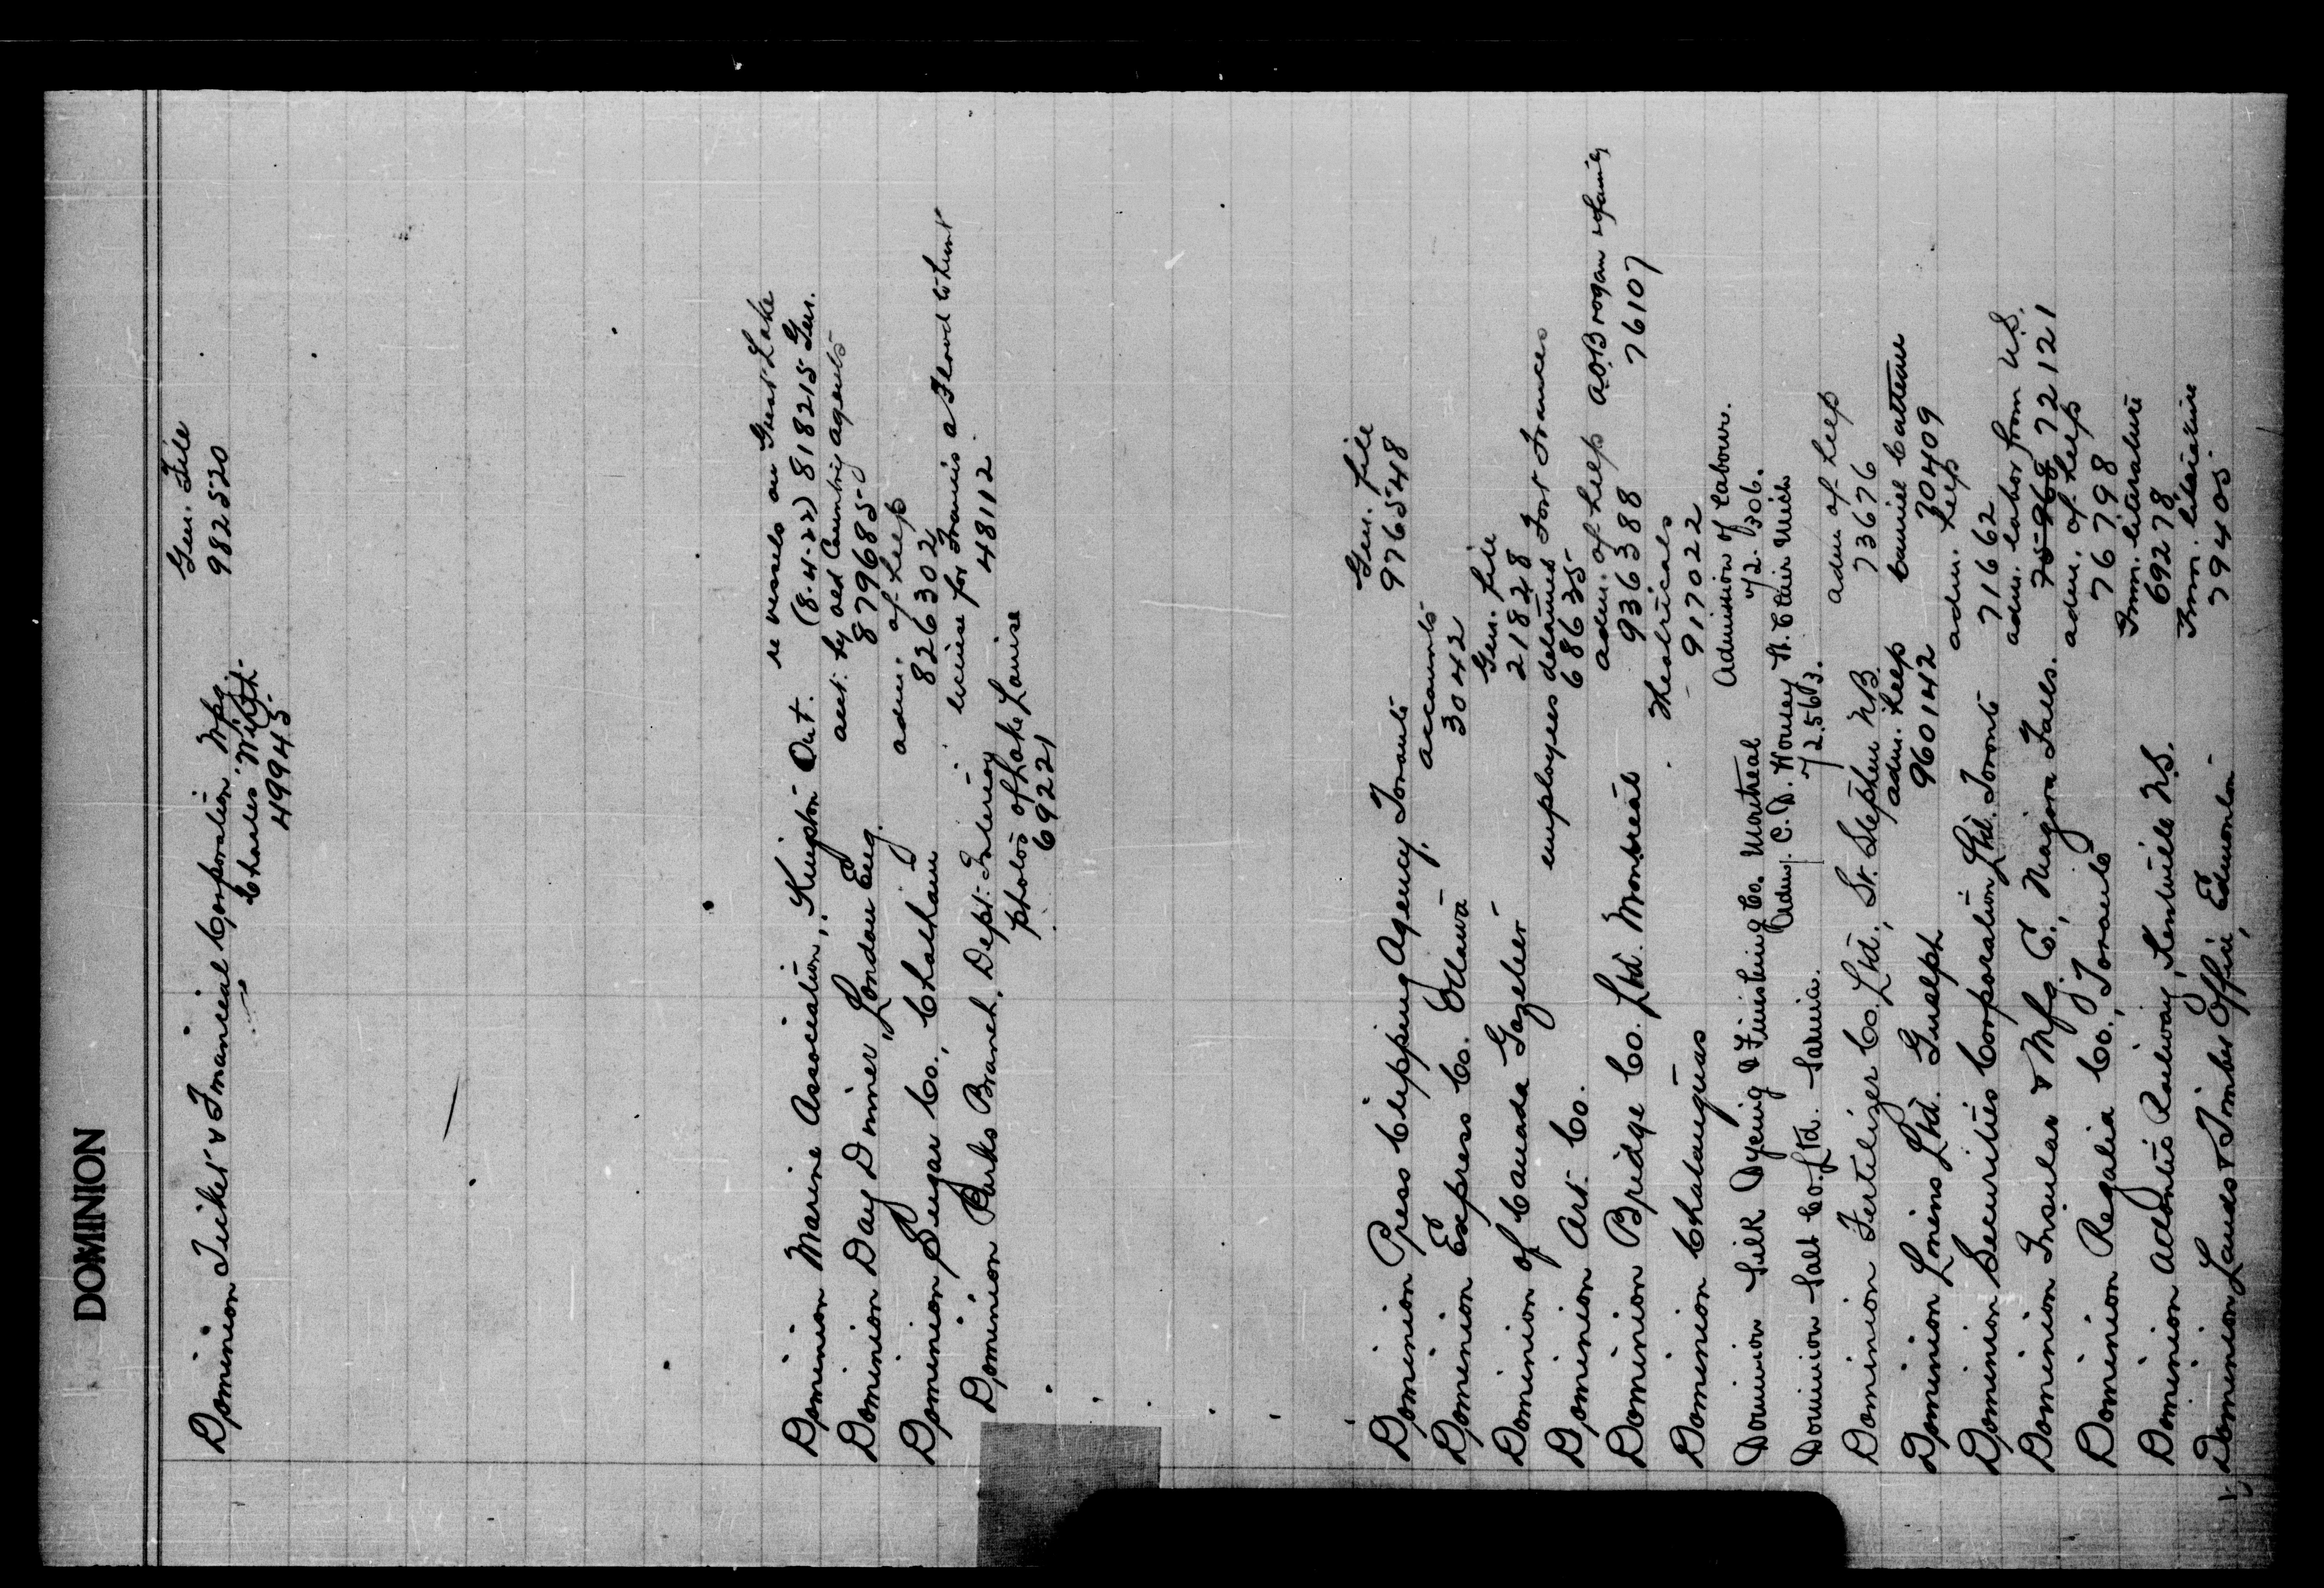 DOMINION
Gen. File
Dominion Ticket & Financial Corporation Wpg. 982520
Charles Wight.
499945
re vessels on Great Lake
Dominion Marine Association, Kingston Ont. (8.4.22) 818215 Gen.
acct. by old Country agents
Dominion Day Dinner, London Eng. 879685
adm. of help
Dominion Sugar Co., Chatham 826302
license for Francis a Flood to hunt
Dominion Parks Branch, Dept. Interior 48112
photos of Lake Louise
69221
Gen. file
Dominion Press Clipping Agency, Toronto 976548
accounts
Dominion Express Co. Ottawa 3042
Gen. file
Dominion of Canada Gazeteer 21828
employees detained Fort Frances
Dominion Art Co. 68635
adm. of help A.O. Brogan
Dominion Bridge Co. Ltd. Montreal 936388 76107
Theatricals
Dominion Chatauquas 917022
Admission of labour.
Dominion Silk Dyeing & Finishing Co. Montreal 72.306.
Adm. C.D. Worley St. Clair Mich
Dominion Salt Co. Ltd. Sarnia. 72.563.
adm of help
Dominion Fertilizer Co. Ltd., St. Stephen N.B. 73676
adm. help
Dominion Linens Ltd. Guelph 960142 30409
adm. help
Dominion Securities Corporation Ltd. Toronto 71662
adm. labor from U.S.
Dominion Insular & Mfg. Co, Niagara Falls. 72121
adm. of help
Dominion Regalia Co., Toronto 76798
Imm. literature
Dominion Atlantic Railway, Kentville N.S. 69278
Imm. literature
Dominion Lands & Timber Office, Edmonton 79405